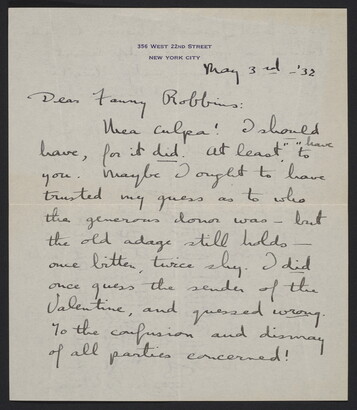 356 WEST 22ND STREET
NEW YORK CITY
May 3rd - '32
Dear Fanny Robbins:
Mea culpa! I should
have, for it did. At least "have" to
you. Maybe I ought to have
trusted my guess as to who
the generous donor was — but
the old adage still holds —
one bitten, twice shy. I did
once guess the sender of the
Valentine, and guessed wrong.
To the confusion and dismay
of all parties concerned!